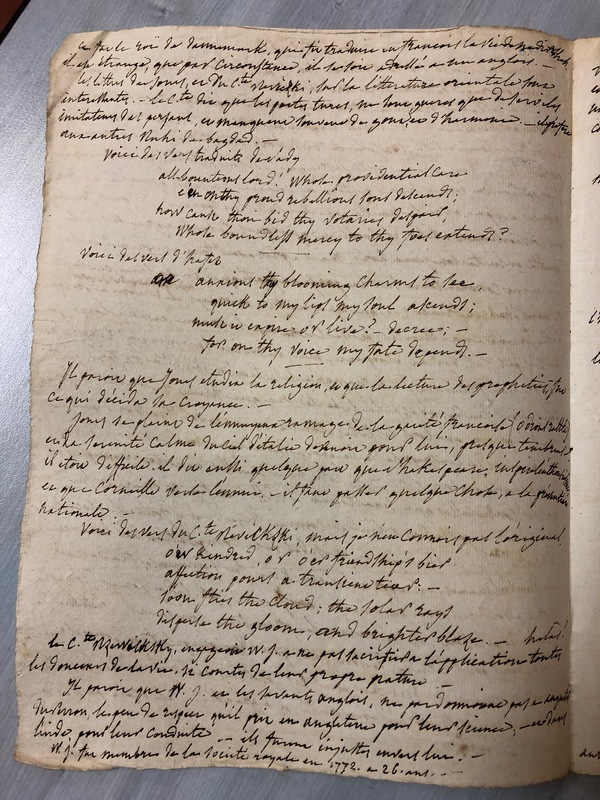 ce fut le roi de dannemark, qui fit traduire en francois la vie de nadir
et est étrange, que par circonstance, il se soit adressé a un anglois. —
les lettres de Jones, et du C.te Reviczki, sur la litterature orientale sont
interessantes. — le C.te dit que les poetes turcs, ne sont gueres que de serviles
imitateurs des persans, et manquent souvent de gout, et d'harmonie. —
aux autres Ruhi de bagdad. —
Voici des vers traduits de sady
all bounteous lord! Whose providential care
e'en on thy proud rebellious sons descends;
how canst thou bid thy votaries despair,
Whose boundless mercy to thy foes extends?
Voici des vers d'hafez
anxious thy blooming charms to see,
quick to my lips my soul ascends;
must it expire or live? — decree; —
for on thy voice my fate depends. —
Il paroit que Jones etudia la religion, et que la lecture des propheties, fut
ce qui décida sa croyance. —
Jones se plaint de l'ennuyeux ramage de la gaieté francoise
et la serenité calme du ciel d'italie devenoit pour lui, presque
il étoit difficile. il dit aussi quelque part que Shakespeare,
et que Corneille verse l'ennui. — il faut passer quelque chose, a la prevention
nationale. —
Voici des vers du C.te Reviczki, mais je n'en connois pas l'original
o'er kindred, or o'er friendship's bier
affection pours a transient tear. —
soon flies the cloud; the solar rays
disperse the gloom, and brighter blaze. — helas!
le C.te Reviczky, engageoit W. J. a ne pas sacrifier a l'application toutes
les douceurs de la vie, de courtes de leur propre nature —
Il paroit que W. J. et les savants anglois, ne pardonnoient pas a anquetil
duperron, le peu de respect qu'il prit en angleterre pour leur science, — et dans
l'inde, pour leur conduite. — ils furent injustes envers lui. —
W. J. fut membre de la société royale en 1772. a 26. ans. —